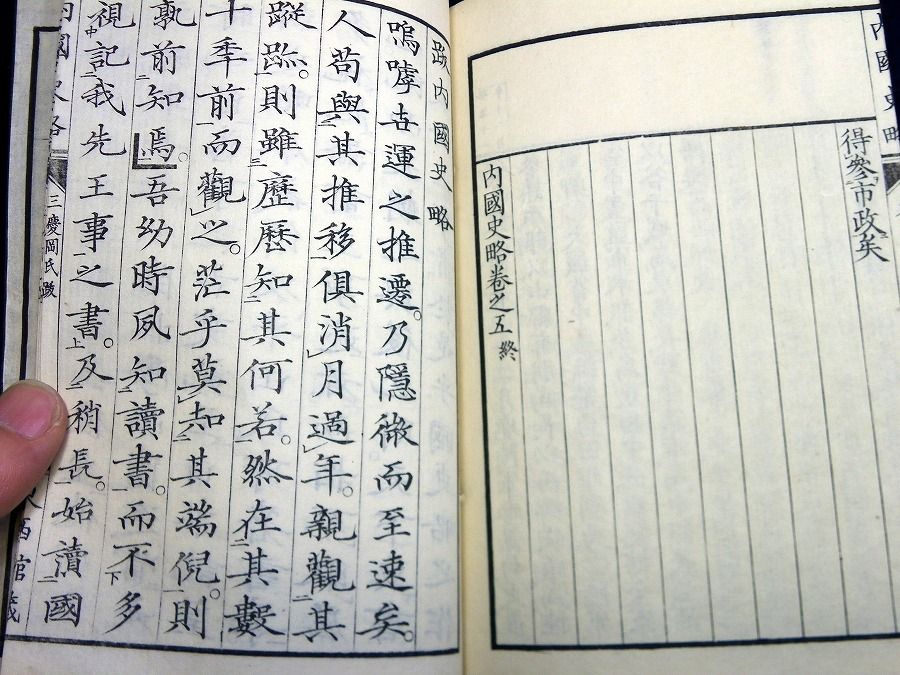 內國史略
得參市政矣
內國史略卷之五 終
跋內國史略
嗚嘑古運之推遷。乃隱微而至速矣。
人苟與其推移俱消月過年。親觀其
蹤跡。則雖歷歷知其何若。然在其數
十年前而觀之。茫乎莫知其端倪。則
孰前知焉。吾幼時夙知讀書。而不多
視記我先王事之書。及稍長。始讀國
內國史略
三 慶岡氏跋